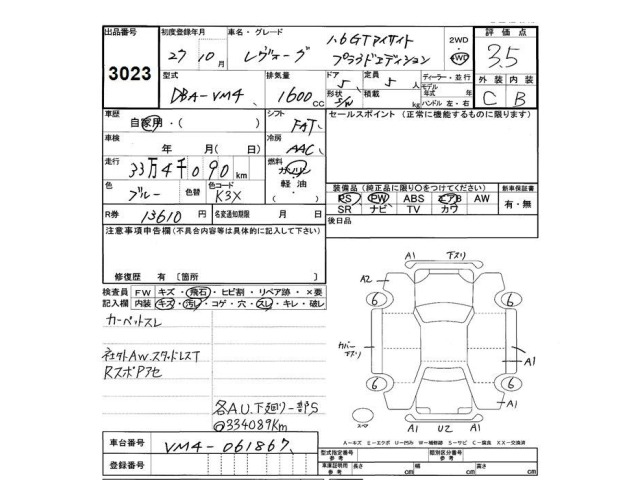 出品番号 3023
初度登録年月 27年 10月
車名・グレード レヴォーグ 1.6GTアイサイト プラウドエディション
2WD 4WD
評価点 3.5
型式 DBA-VM4
排気量 1600 CC
ドア 5 形状 S/W
定員 5 人
積載 kg
ディーラー・並行
モデル年式 年
ハンドル 左・右
外装 内装
C B
車歴 自家用・( )
シフト FAT
セールスポイント (正常に機能するものに限ります)
車検 年 月( 日)
冷房 AAC
走行 33万4千090 km
燃料 ガソリン 軽油 ・( )
色 ブルー 色替 色コード K3X
装備品 (純正品に限り〇をつけてください) 新車保証書
PS PW ABS エアB AW 有・無
SR ナビ TV カワ
R券 13610 円 名変通知期限 月 日
後日品
注意事項申告欄(不具合内容等は具体的に記入して下さい)
修復歴 有 〔箇所 〕
検査員記入欄 FW キズ・飛石・ヒビ割・リペア跡・×要
内装 キズ・汚レ・コゲ・穴・スレ・キレ・破レ
カーペットスレ
社外AW.スタッドレスT
RスポPアセ
各A.U.下廻り一部S
@334089Km
A1 下スリ
A2
6 6
カバー下スリ A1
6 6
A1
スペア A1 U2 A1
A-キズ E-エクボ U-凹み W-補修跡 S-サビ C-腐食 XX-交換済
車台番号 VM4-061867
登録番号
型式指定番号 参考 類別区分番号 参考
車庫証明用 参考 長さ cm 幅 cm 高さ cm